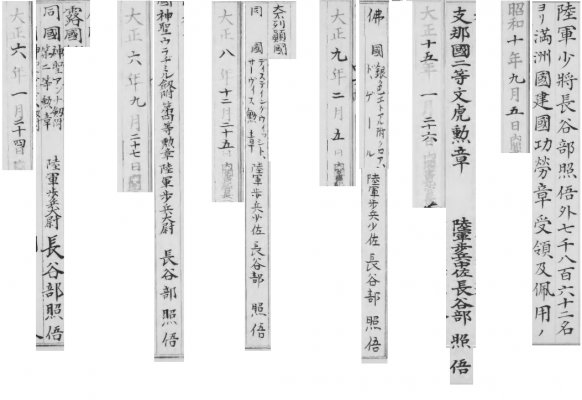 陸軍少將長谷部照俉外七千八百六十二名
ヨリ滿洲國建國功勞章受領及佩用ノ
昭和十年九月五日
支那國二等文虎勲章 陸軍歩兵中佐長谷部照俉
大正十五年一月二十六
佛國銀色エトアル附クロアド、ゲール 陸軍歩兵少佐長谷部照俉
大正九年二月五日
英列顛國
同國ディスティングウィッシト、サーヴィス勲章 陸軍歩兵少佐長谷部照俉
大正八年十二月二十五日
國神聖ウラヂミル劔附第四等勲章陸軍歩兵大尉長谷部照俉
大正六年九月二十七日
露國
同國神聖アンナ劔附第二等勲章 陸軍歩兵大尉長谷部照俉
大正六年一月二十四日